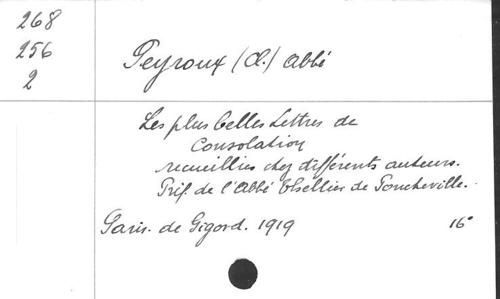 268
256
2
Peyroux (Cl.) Abbé
Les plus belles Lettres de
Consolation
recueillies chez différents auteurs.
Préf. de l'Abbé Thellier de Poncheville.
Paris. de Gigord. 1919 16°